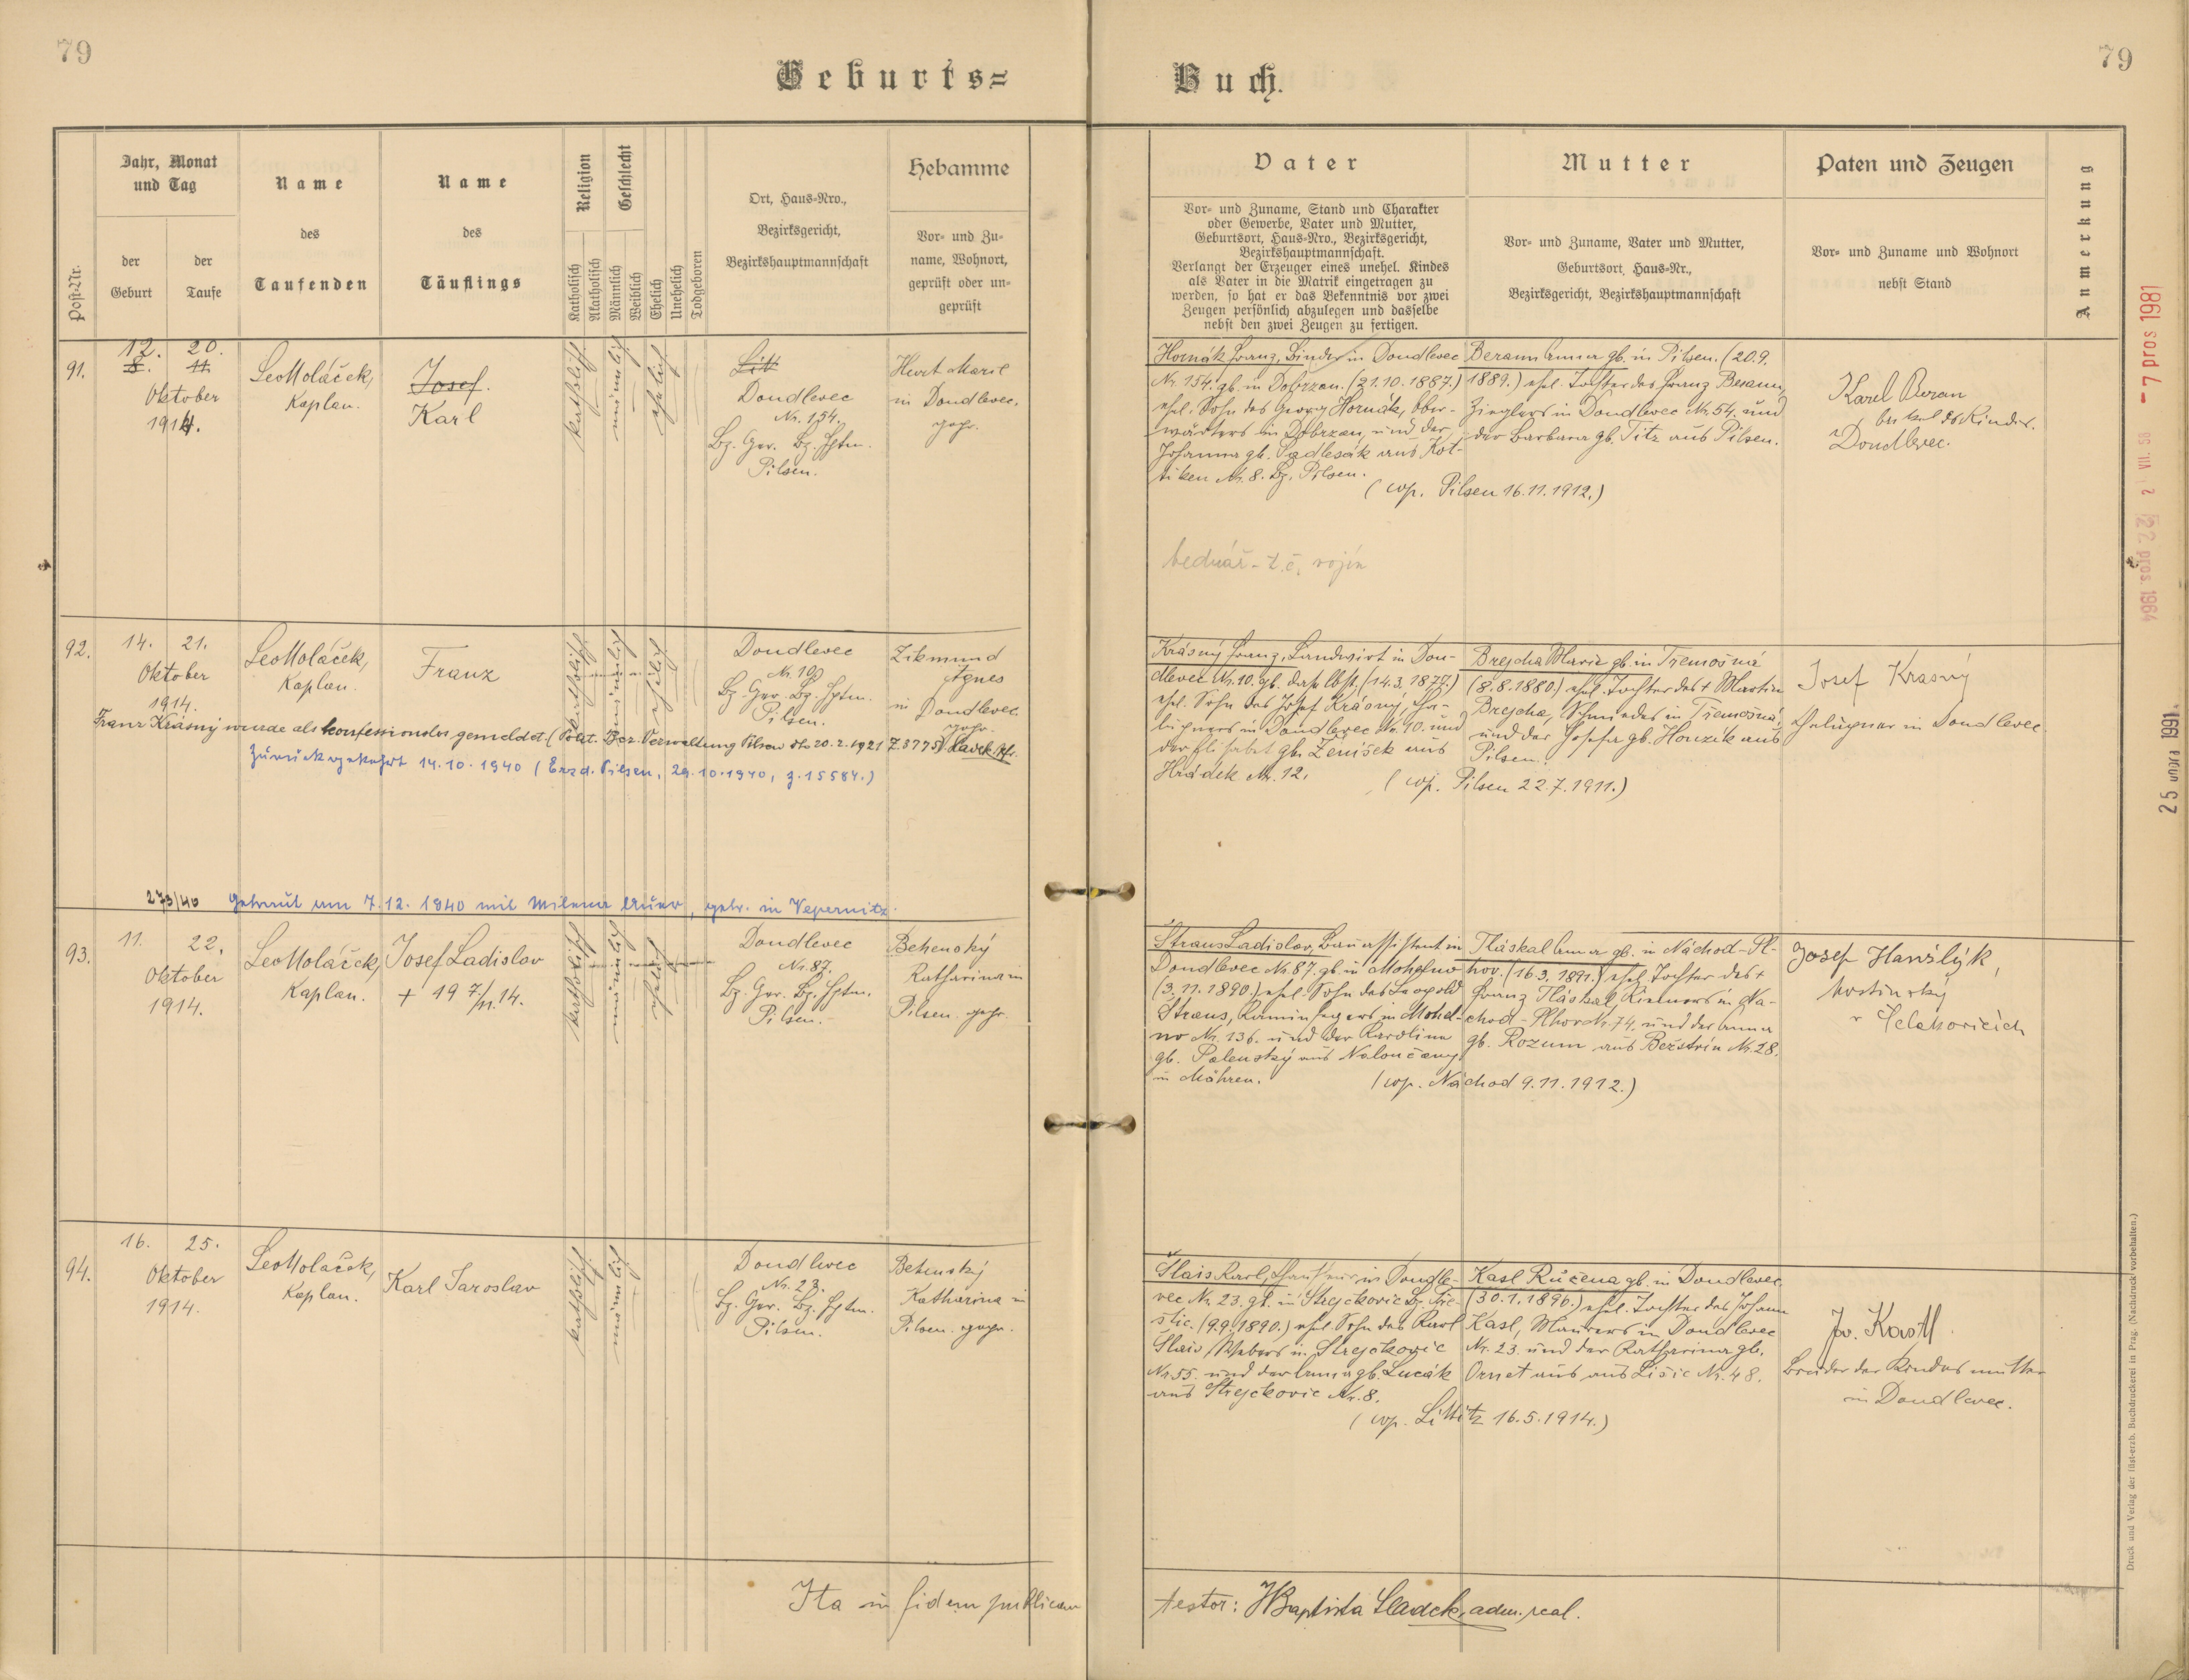 79
79
Geburts=
Buch.
Post-Nr.
Jahr, Monat
und Tag
der
Geburt
der
Taufe
Name
des
Taufenden
Name
des
Täuflings
Religion
Geschlecht
Katholisch
Akatholisch
Männlich
Weiblich
Ehelich
Unehelich
Todgeboren
Ort, Haus=Nro.,
Bezirksgericht,
Bezirkshauptmannschaft
Hebamme
Vor= und Zu=
name, Wohnort,
geprüft oder un=
geprüft
Vater
Vor= und Zuname, Stand und Charakter
oder Gewerbe, Vater und Mutter,
Geburtsort, Haus=Nro., Bezirksgericht,
Bezirkshauptmannschaft.
Verlangt der Erzeuger eines unehel. Kindes
als Vater in die Matrik eingetragen zu
werden, so hat er das Bekenntnis vor zwei
Zeugen persönlich abzulegen und dasselbe
nebst den zwei Zeugen zu fertigen.
Mutter
Vor= und Zuname, Vater und Mutter,
Geburtsort, Haus=Nr.,
Bezirksgericht, Bezirkshauptmannschaft
Paten und Zeugen
Vor= und Zuname und Wohnort
nebst Stand
Anmerkung
91.
12. 20.
8. 11.
Oktober
1914.
Leo Moláček,
Kaplan.
Josef.
Karl
katholisch
männlich
ehelich
Litt
Doudlevec
Nr. 154.
Bz. Ger. Bz. Hptm.
Pilsen.
Hurt Marie
in Doudlevec.
gepr.
Hornák Franz, Binder in Doudlevec
Nr. 154. gb. in Dobrzan. (21.10.1887.)
ehel. Sohn des Georg Hornák, Ober-
wärters in Dobrzan, und der
Johanna gb. Sedlesák aus Kot-
tiken Nr. 8. Bz. Pilsen.
Beraun Anna gb. in Pilsen. (20.9.
1889.) ehel. Tochter des Franz Beraun,
Zieglers in Doudlevec Nr. 54. und
der Barbara gb. Titz aus Pilsen.
(cop. Pilsen 16.11.1912.)
Karel Beran
Onkel des Kindes.
Doudlevec.
bednář - t.č. vojín
92.
14. 21.
Oktober
1914.
Leo Moláček,
Kaplan.
Franz
katholisch
männlich
ehelich
Doudlevec
Nr. 10
Bz. Ger. Bz. Hptm.
Pilsen.
Zikmund
Agnes
in Doudlevec
gepr.
Krásný Franz, Landwirt in Dou-
dlevec Nr. 10. gb. daselbst, (14.3.1877.)
ehel. Sohn des Josef Krásný, Cha-
lupners in Doudlevec Nr. 10. und
der Elisabet gb. Zeníšek aus
Hrádek Nr. 12.
Brejcha Marie gb. in Třemošná
(8.8.1880.) ehel. Tochter des + Martin
Brejcha, Schmiedes in Třemošná,
und der Josefa gb. Houzik aus
Pilsen.
(cop. Pilsen 22.7.1911.)
Josef Krasný
Chalupner in Doudlevec
Franz Krásný wurde als konfessionslos gemeldet (Polit. Bez. Verwaltung Pilsen dto 20.2.1921 Z. 8775) Sladek Pf.
Zurückgekehrt 14.10.1940 (Erzd. Pilsen, 29.10.1940, z. 15584.)
273/40 Getraut am 7.12.1940 mit Milena Auer, gebr. in Vepernitz.
93.
11. 22.
Oktober
1914.
Leo Moláček,
Kaplan.
Josef Ladislav
+ 19 7/11. 14.
katholisch
männlich
ehelich
Doudlevec
Nr. 87.
Bz. Ger. Bz. Hptm.
Pilsen.
Behenský
Katharina in
Pilsen. gepr.
Straus Ladislav, Bauassistent in
Doudlevec Nr. 87. gb. in Mohelno
(3.11.1890.) ehel. Sohn des Leopold
Straus, Kaminfegers in Mohel-
no Nr. 136. und der Karolina
gb. Palenský aus Naloučany
in Mähren.
Tláskal Anna gb. in Náchod-Pl-
hov. (16.3.1891.) ehel. Tochter des +
Franz Tláskal, Riemers in Ná-
chod-Plhov Nr. 74. und der Anna
gb. Rozum aus Bezstrin Nr. 28.
(cop. Náchod 9.11.1912.)
Josef Hanslýk,
hostinský
v Čelakovicích
94.
16. 25.
Oktober
1914.
Leo Moláček,
Kaplan.
Karl Jaroslav
katholisch
männlich
Doudlevec
Nr. 23.
Bz. Ger. Bz. Hptm.
Pilsen.
Behenský
Katharina in
Pilsen. gepr.
Slais Karl, in Doudle-
vec Nr. 23. gb. in Strejckovic Bz. Pře-
štic. (9.9.1890.) ehel. Sohn des Karl
Slais, Webers in Strejckovic
Nr. 55. und der Anna gb. Lucák
aus Strejckovic Nr. 8.
Kasl Růžena gb. in Doudlevec
(30.1.1896.) ehel. Tochter des Johann
Kasl, Maurers in Doudlevec
Nr. 23. und der Katharina gb.
Ornet aus aus Lišic Nr. 48.
(cop. Littitz 16.5.1914.)
Jos. Kastl
Bruder der Kindesmutter
in Doudlevec.
Ita in fidem publicam
testor: J Baptista Sladek, adm. real.
- 7 pros 1981
2 VII. 58
2 pros. 1964
25 února 1991
Druck und Verlag der fürst-erzb. Buchdruckerei in Prag. (Nachdruck vorbehalten.)